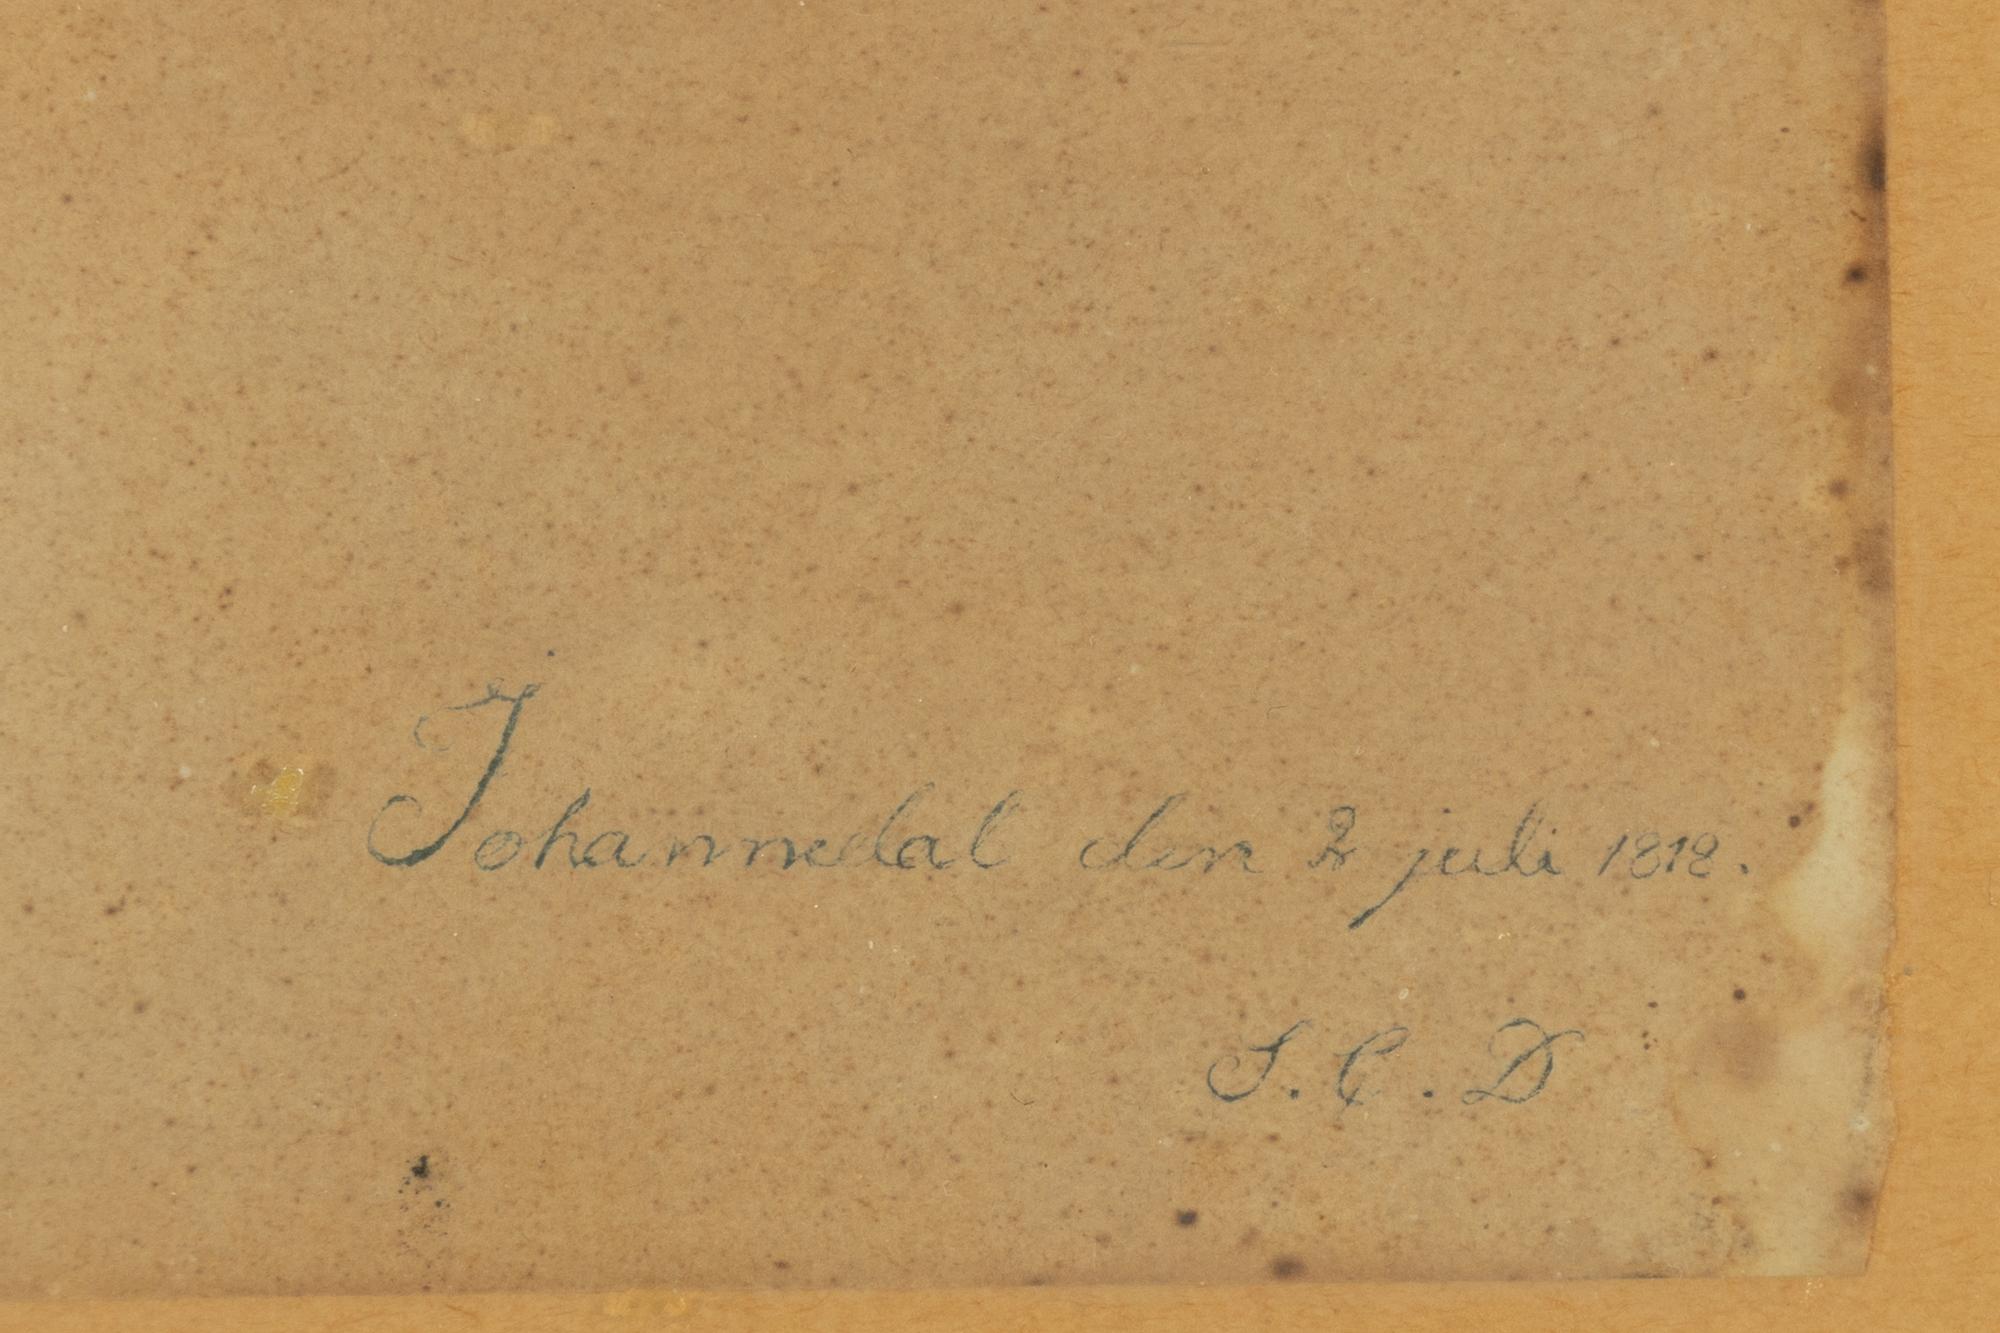 Johannedal den 2 juli 1818.
S. C. D